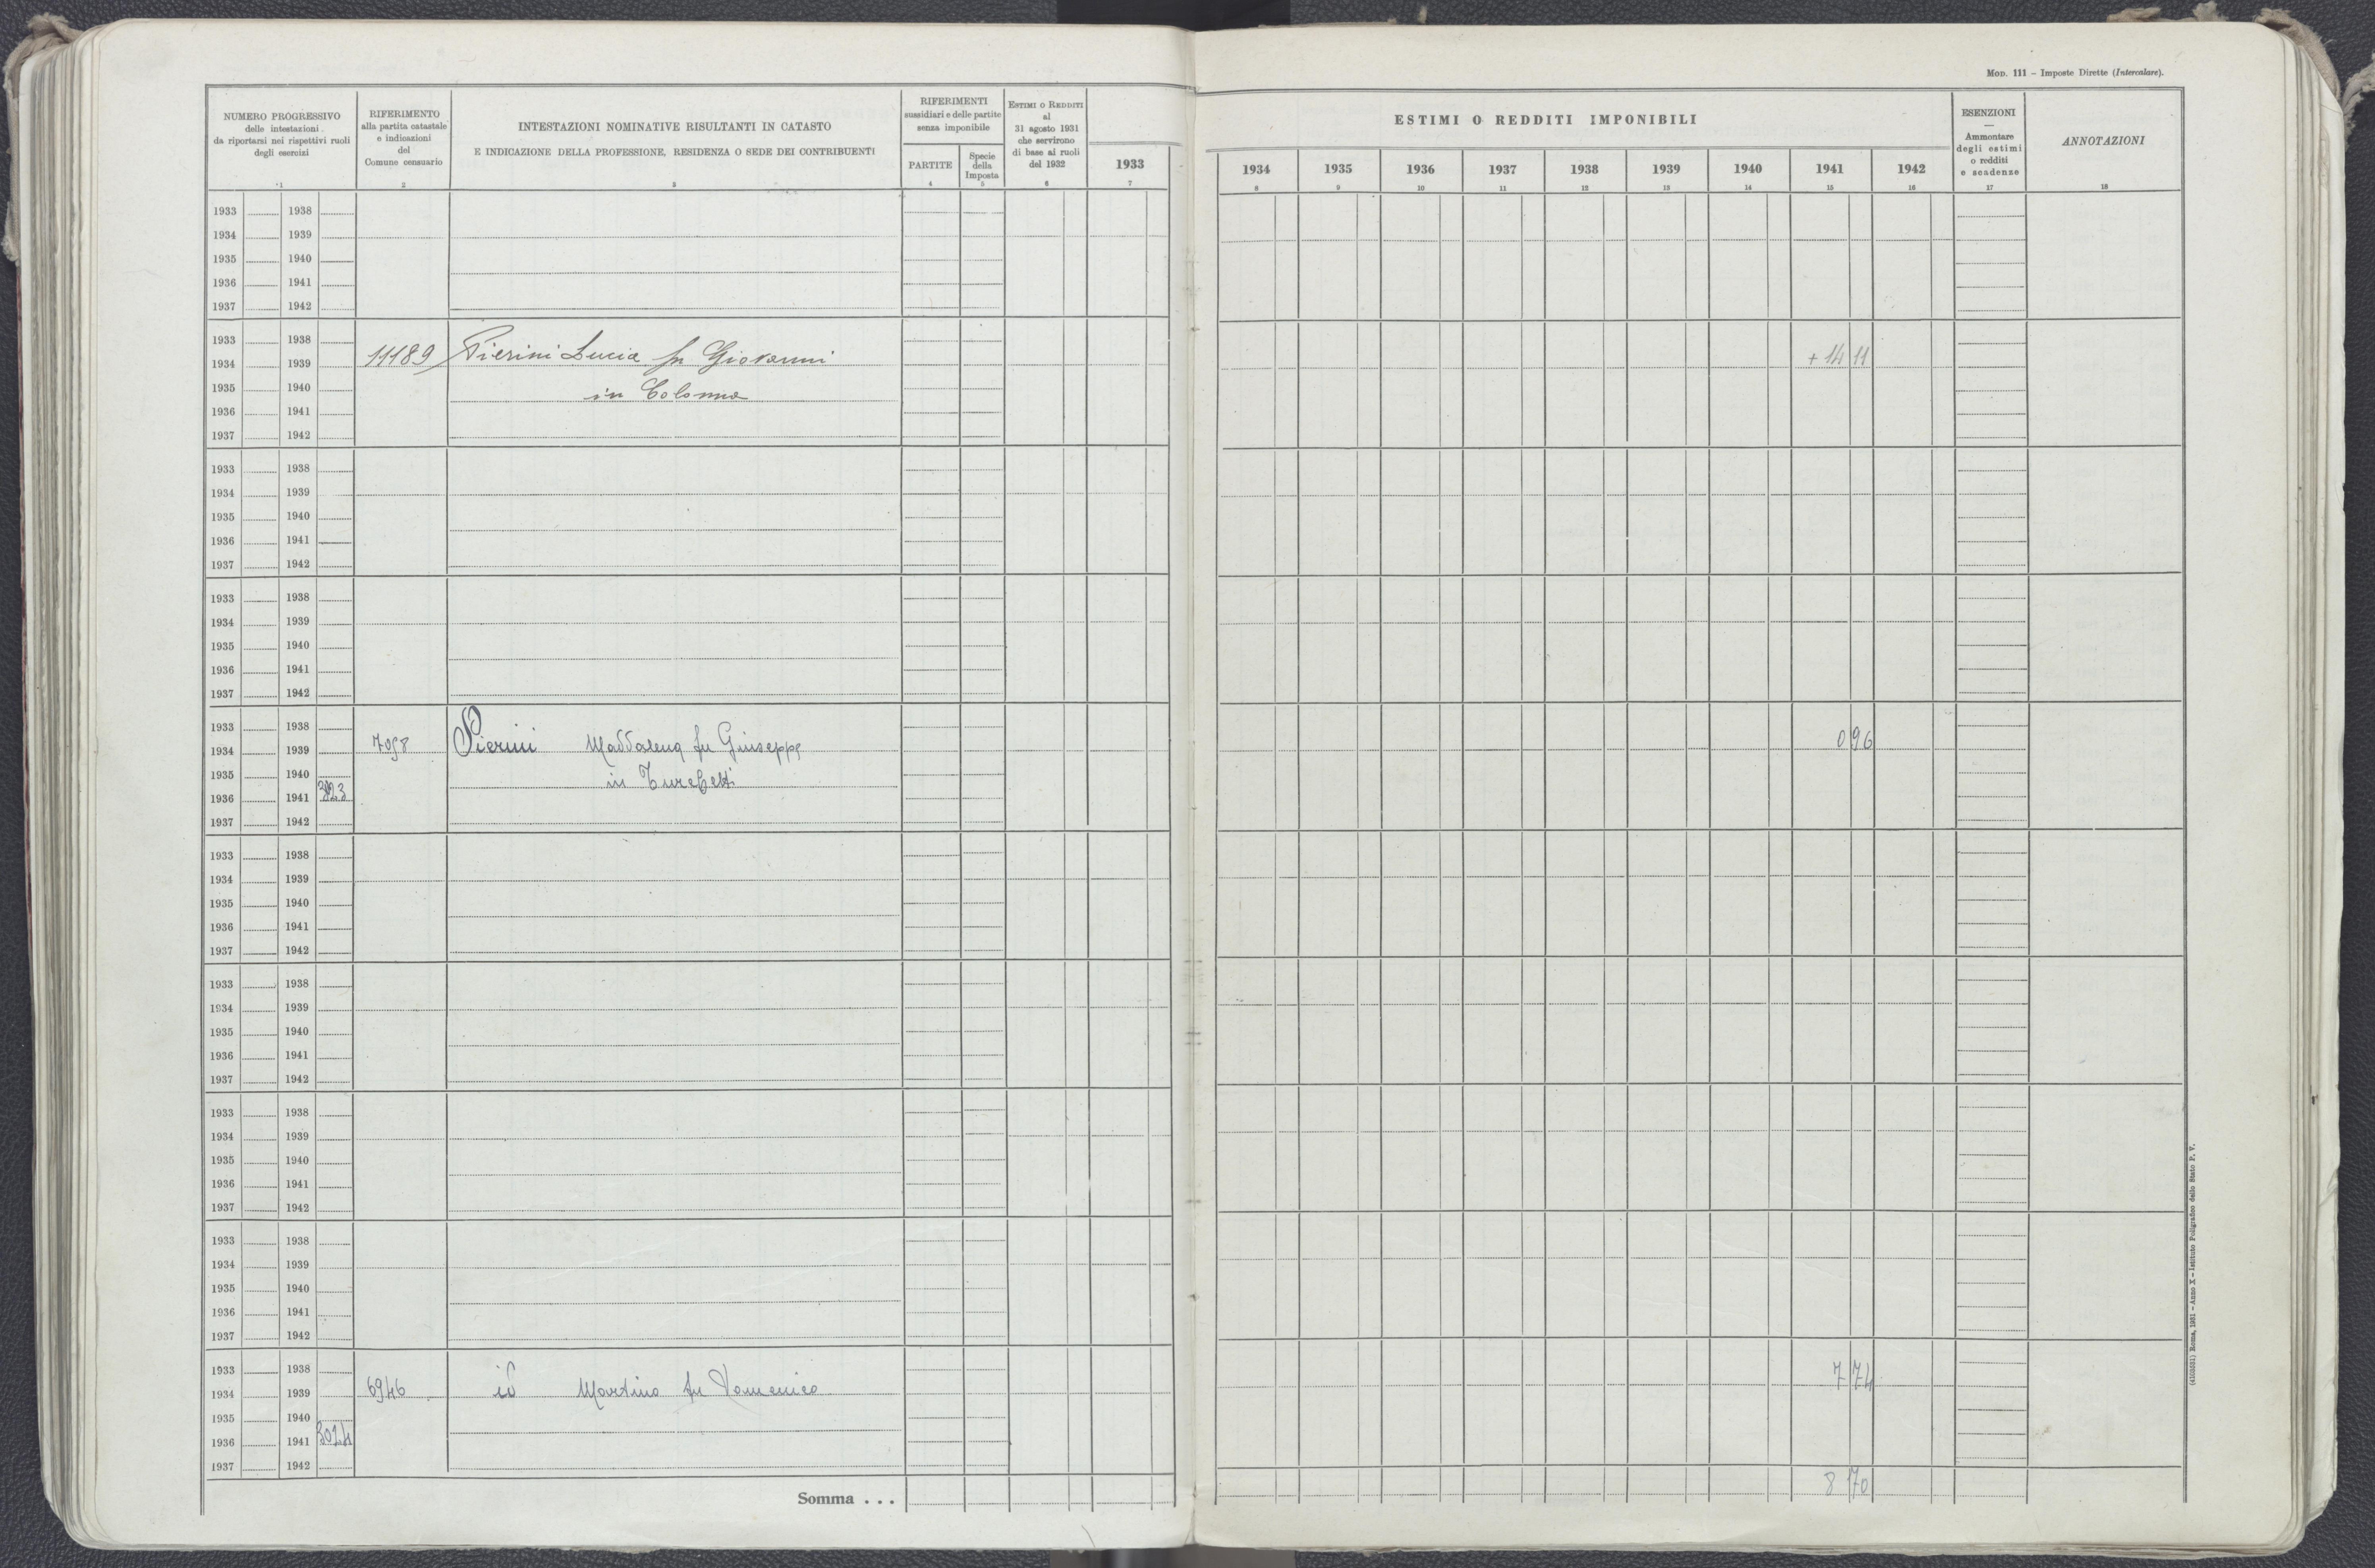 MOD. 111 – Imposte Dirette (Intercalare).
NUMERO PROGRESSIVO
delle intestazioni
da riportarsi nei rispettivi ruoli
degli esercizi
1
RIFERIMENTO
alla partita catastale
e indicazioni
del
Comune censuario
2
INTESTAZIONI NOMINATIVE RISULTANTI IN CATASTO
E INDICAZIONE DELLA PROFESSIONE, RESIDENZA O SEDE DEI CONTRIBUENTI
3
RIFERIMENTI
sussidiari e delle partite
senza imponibile
PARTITE
4
Specie
della
Imposta
5
ESTIMI O REDDITI
al
31 agosto 1931
che servirono
di base ai ruoli
del 1932
6
1933
7
ESTIMI O REDDITI IMPONIBILI
1934 1935 1936 1937 1938 1939 1940 1941 1942
8 9 10 11 12 13 14 15 16
ESENZIONI
—
Ammontare
degli estimi
o redditi
e scadenze
17
ANNOTAZIONI
18
1933 1938
1934 1939
1935 1940
1936 1941
1937 1942
1933 1938
1934 1939 11189 Pierini Lucia fu Giovanni + 14 11
1935 1940 in Colonna
1936 1941
1937 1942
1933 1938
1934 1939
1935 1940
1936 1941
1937 1942
1933 1938
1934 1939
1935 1940
1936 1941
1937 1942
1933 1938
1934 1939 7058 Pierini Maddalena fu Giuseppe 0 96
1935 1940 in Turchetti
1936 1941
1937 1942
1933 1938
1934 1939
1935 1940
1936 1941
1937 1942
1933 1938
1934 1939
1935 1940
1936 1941
1937 1942
1933 1938
1934 1939
1935 1940
1936 1941
1937 1942
1933 1938
1934 1939
1935 1940
1936 1941
1937 1942
1933 1938
1934 1939 6946 id Martino fu Domenico 7 74
1935 1940
1936 1941 3024
1937 1942
Somma . . . 8 70
(4105551) Roma, 1931 – Anno X – Istituto Poligrafico dello Stato P. V.